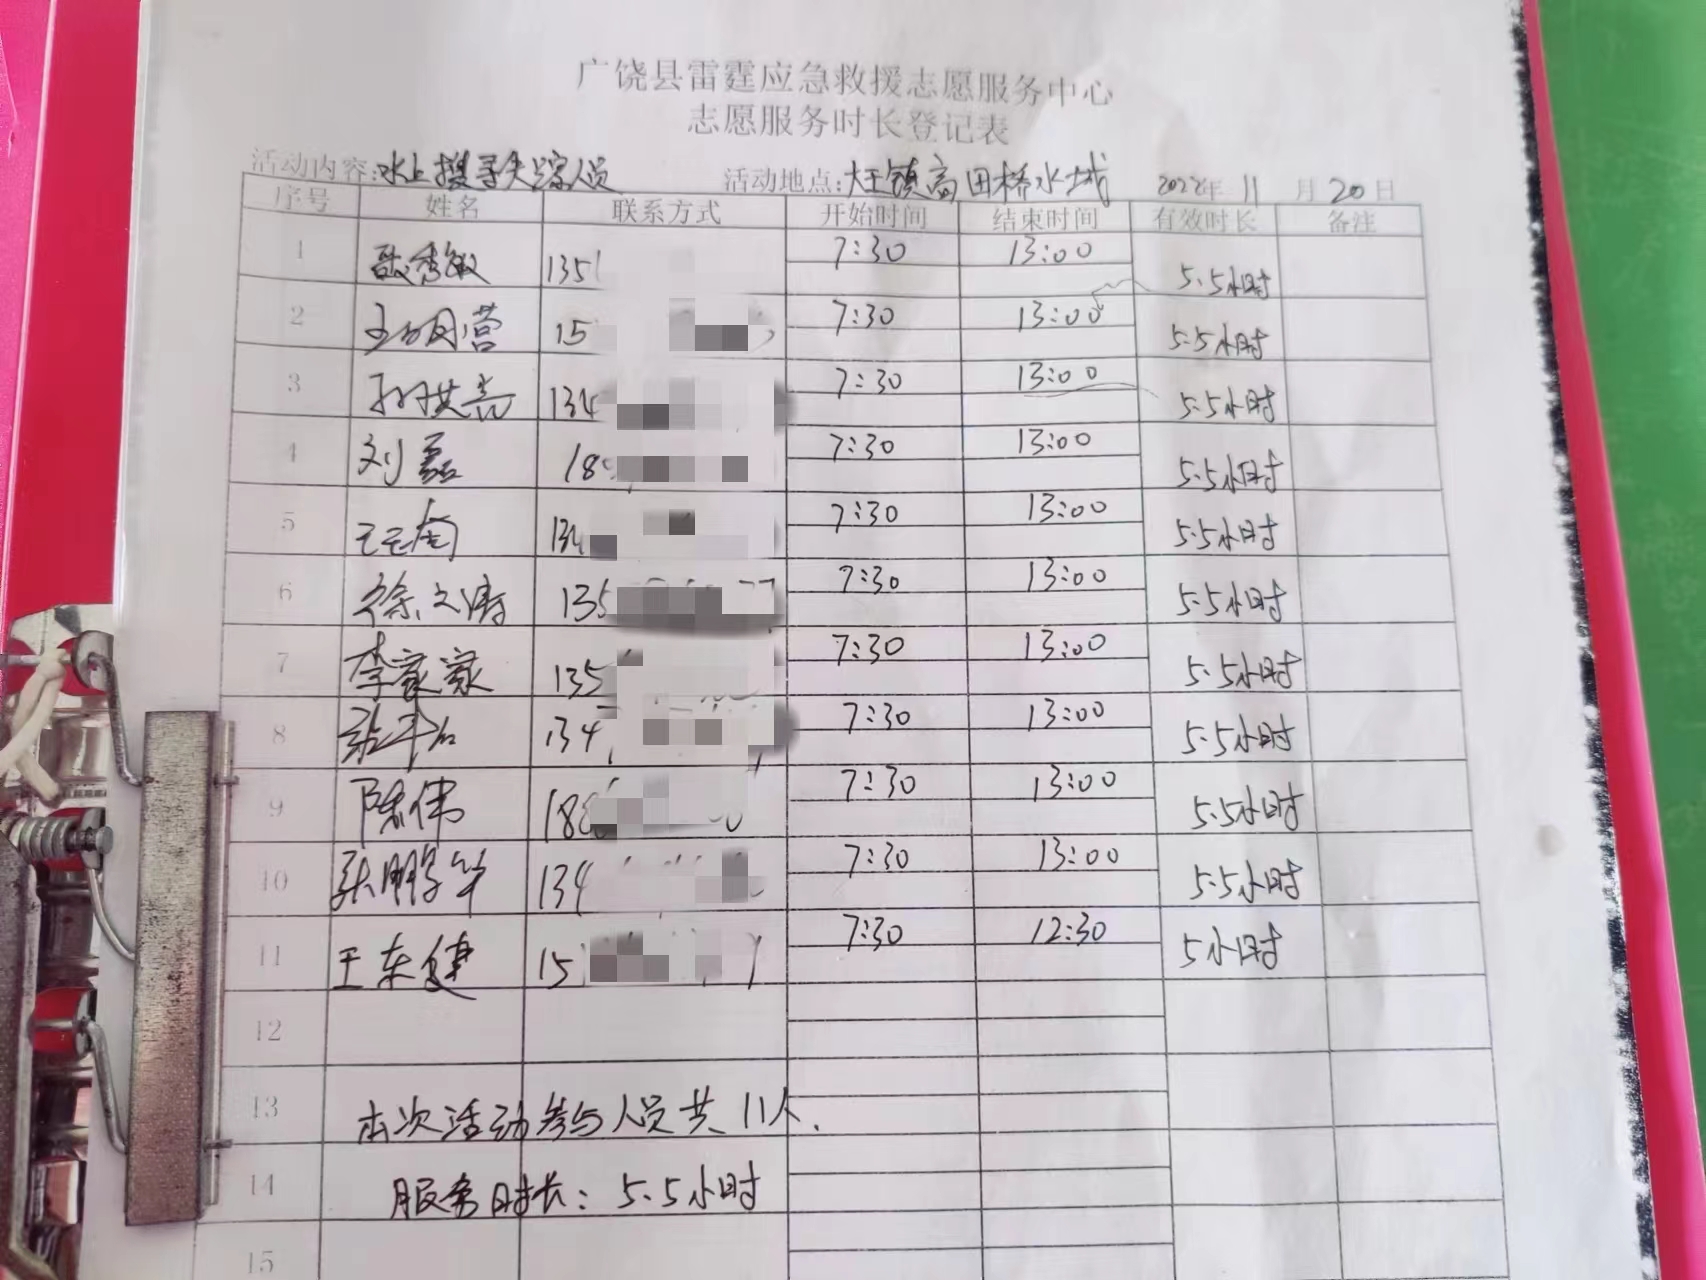 广饶县雷霆应急救援志愿服务中心
志愿服务时长登记表
活动内容:水上搜寻失踪人员 活动地点:大王镇高田桥水域 2022年 11 月 20 日
序号 姓名 联系方式 开始时间 结束时间 有效时长 备注
1 135 7:30 13:00 5.5小时
2 15 7:30 13:00 5.5小时
3 134 7:30 13:00 5.5小时
4 刘磊 18 7:30 13:00 5.5小时
5 134 7:30 13:00 5.5小时
6 徐文涛 135 7:30 13:00 5.5小时
7 李家家 135 7:30 13:00 5.5小时
8 134 7:30 13:00 5.5小时
9 陈伟 188 7:30 13:00 5.5小时
10 张鹏华 134 7:30 13:00 5.5小时
11 王东健 15 7:30 12:30 5小时
12
13 本次活动参与人员共11人.
14 服务时长:5.5小时
15